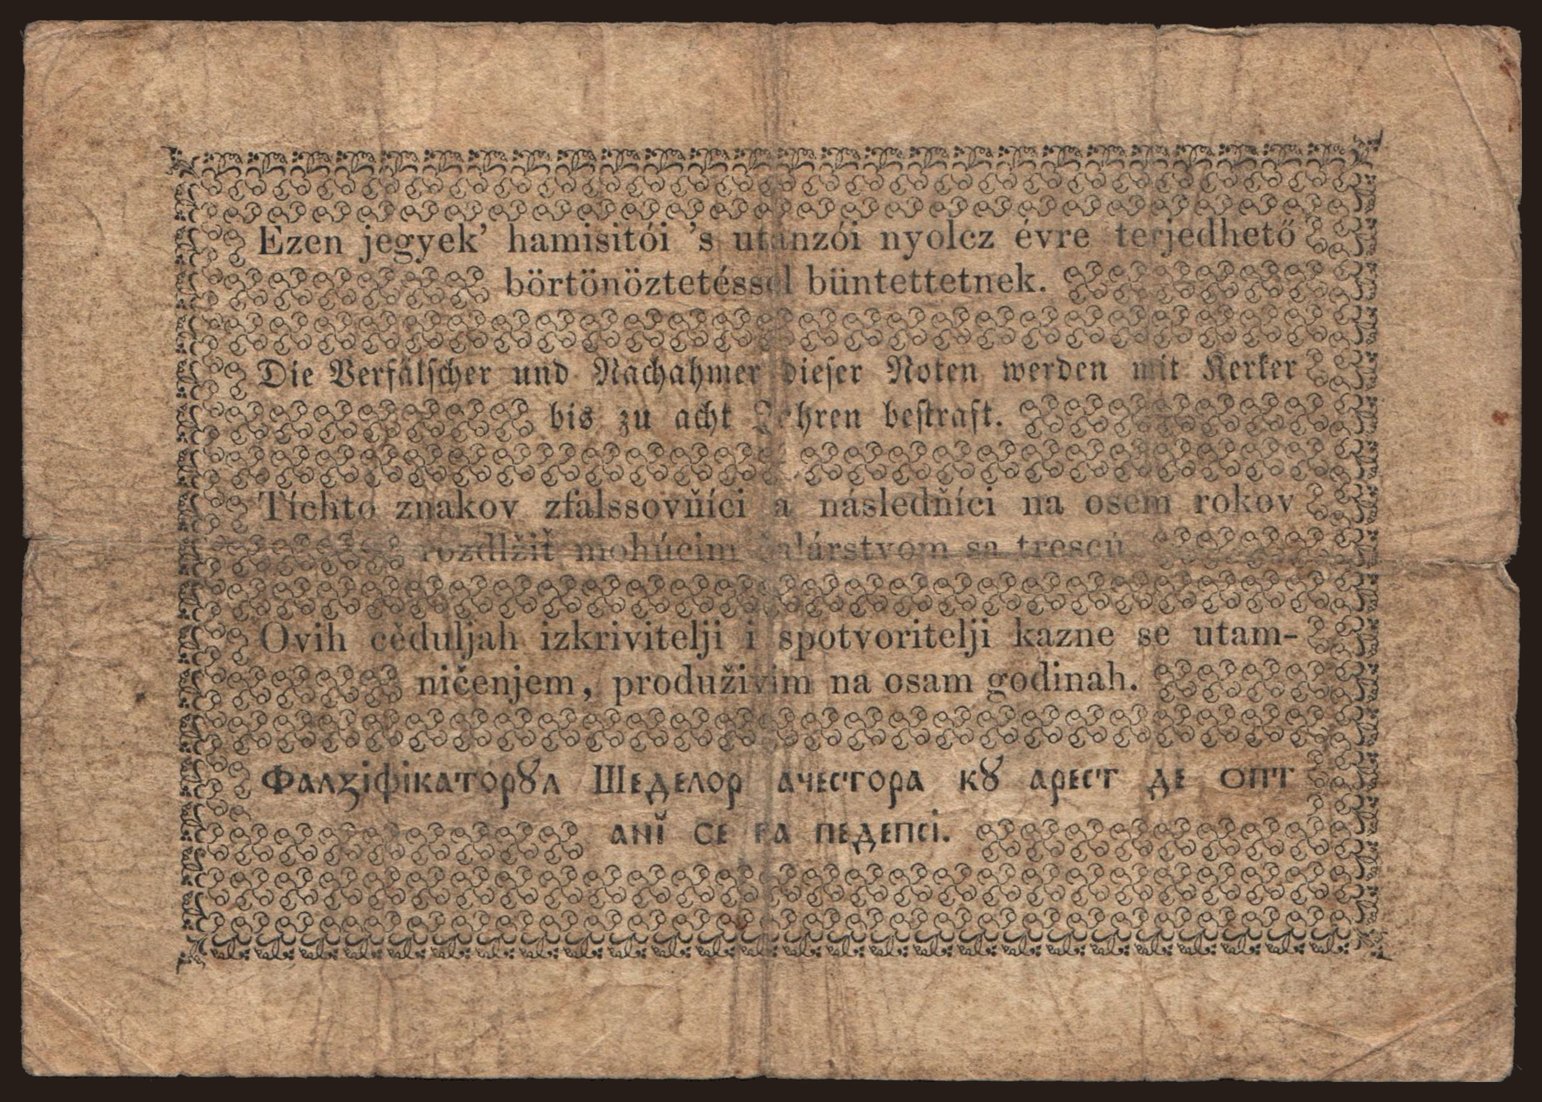 Ezen jegyek’ hamisitói ’s utánzói nyolcz évre terjedhető
börtönöztetéssel büntettetnek.
Die Verfälscher und Nachahmer dieser Noten werden mit Kerker
bis zu acht Jahren bestraft.
Tíchto znakov zfalssovňíci a následňíci na osem rokov
rozdlžiť mohúcim žalárstvom sa trescú
Ovih cěduljah izkrivitelji i spotvoritelji kazne se utam-
ničenjem, produživim na osam godinah.
Фалзіфікаторꙋл Шеделор ачестора кꙋ арест де опт
анй се ва педепсі.